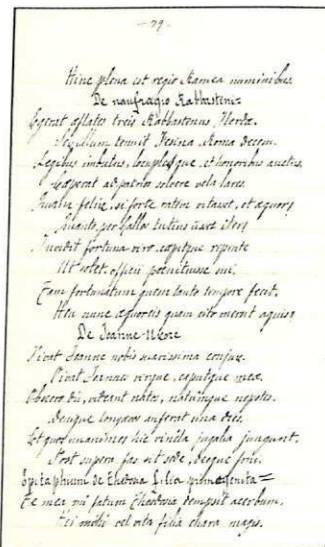 - 29 -
Hinc plena est regio Ramea numinibus
De naufragio Rabbasteni
Egerat aestates treis Rabbastenus Ilerdae.
tenuit Roma decem.
Legibus imbutus, locuplesque, et honoribus auctus,
Coeperat ad patrios solvere vela lares.
felix, si forte ratem vitasset, et aequora
per Gallos tutius isset iter;
Invidit fortuna viro, caepitque repente
Ut solet, officii poenituisse sui.
Tam fortunatum quem tanto tempore fecit,
Heu nunc aequoreis quam cito mersit aquis
De Joanne Uxore
Vivat Joanne nobis carissima conjux.
Vivat Joannes virque, caputque meae.
Obsecro Dii, videant natos, natumque nepotes.
Denque longaevos auferat una dies.
Et quos unanimes hic vincla jugalia jungunt,
Post supera fas sit sede, Deoque frui.
Epitaphium de Theodora filia primogenita =
Te mea mi fatum Theodora dempsit acerbum.
Hei mihi vel vita filia chara magis.